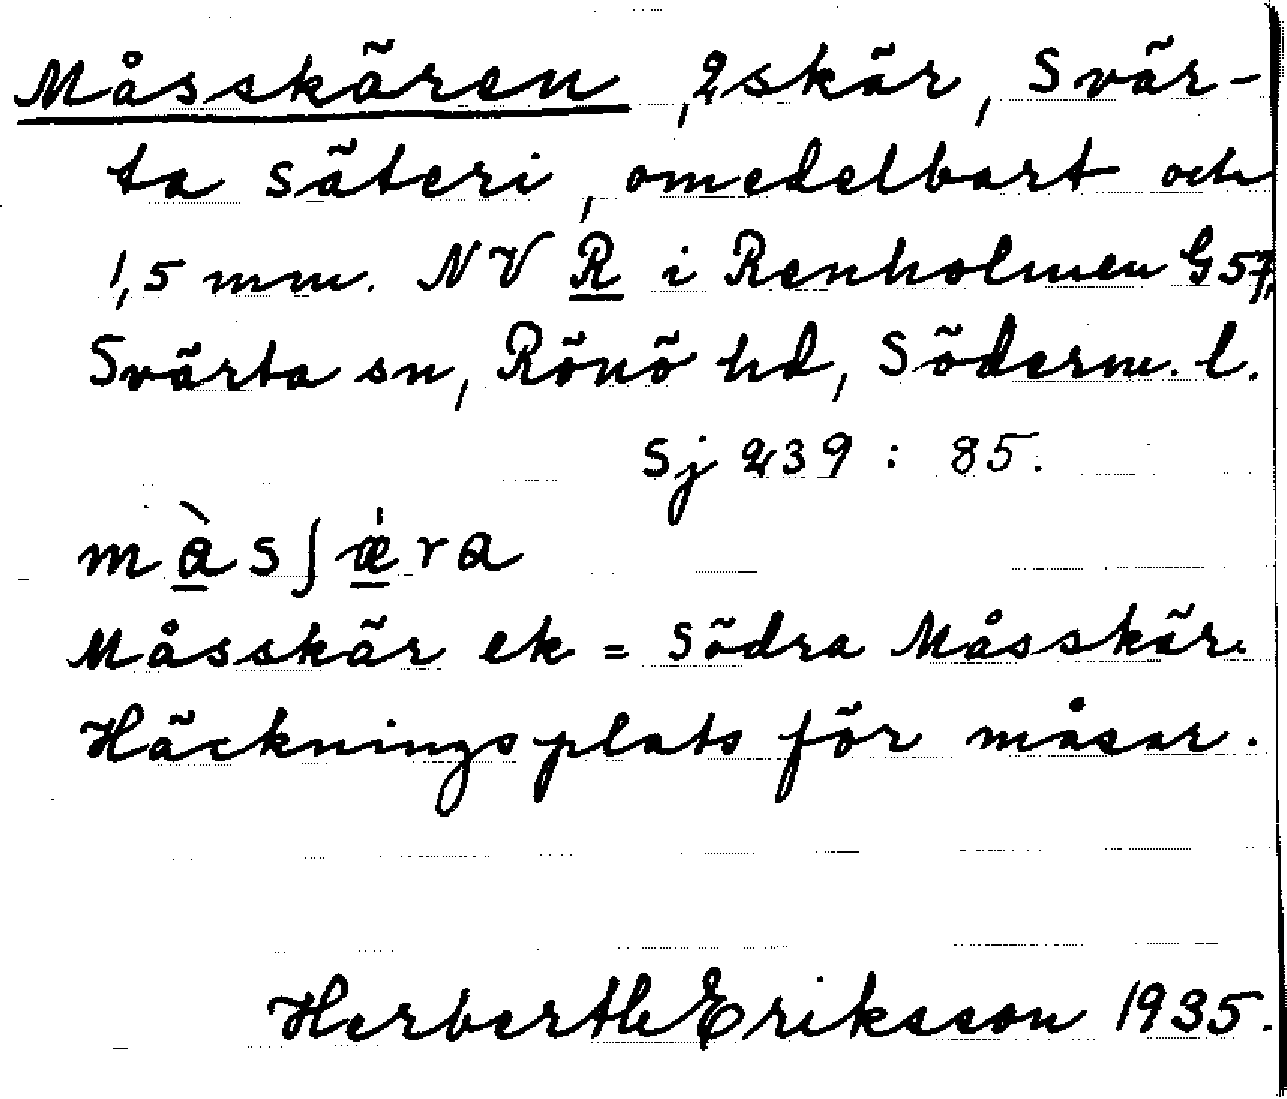 Måsskären, 2 skär, Svär-
ta säteri, omedelbart och
1,5 mm. NV R i Renholmen G 57,
Svärta sn, Rönö hd, Söderm. l.
Sj 239 : 85.
màsʃǽra
Måsskär ek = Södra Måsskär.
Häckningsplats för måsar.
Herberth Eriksson 1935.